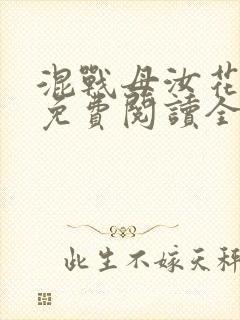 混戰母汝花
免費閱讀全
此生不嫁天秤